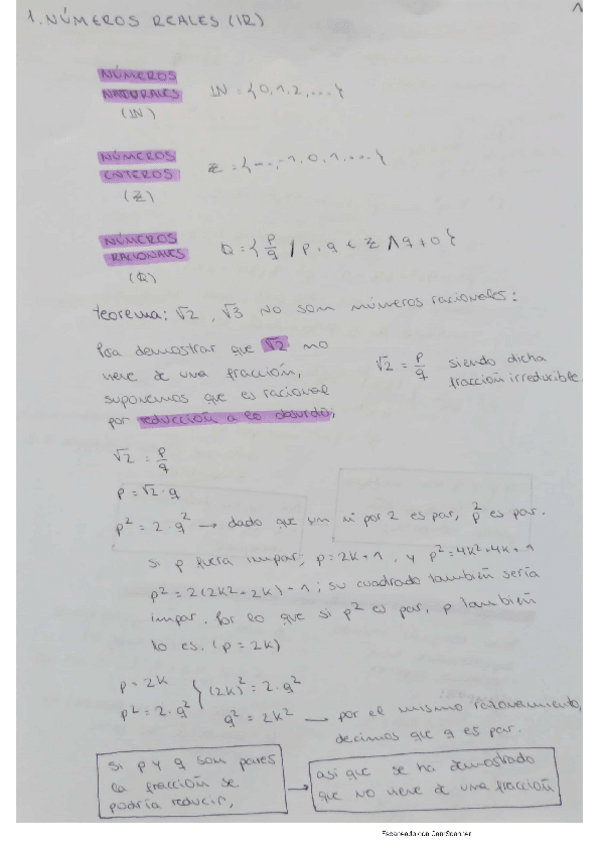 1. NÚMEROS REALES (IR)
NÚMEROS
NATURALES
(IN)
IN = {0,1,2,...}
NÚMEROS
ENTEROS
(Z)
Z = {...,-1,0,1,...}
NÚMEROS
RACIONALES
(Q)
Q = { p/q / p, q ∈ Z ∧ q ≠ 0 }
teorema: √2, √3 NO son números racionales:
Para demostrar que √2 no
viene de una fracción,
suponemos que es racional
por reducción a lo absurdo;
√2 = p/q siendo dicha
fracción irreducible.
√2 = p/q
p = √2 · q
p² = 2 · q² → dado que por 2 es par, p² es par.
si p fuera impar; p = 2k+1, y p² = 4k²+4k+1
p² = 2(2k²+2k)+1; su cuadrado también sería
impar. Por lo que si p² es par, p también
lo es. (p = 2k)
p = 2k
p² = 2·q²
} (2k)² = 2·q²
q² = 2k² → por el mismo razonamiento,
decimos que q es par.
si p y q son pares
la fracción se
podría reducir,
→
asi que se ha demostrado
que no viene de una fracción
Escaneado con CamScanner